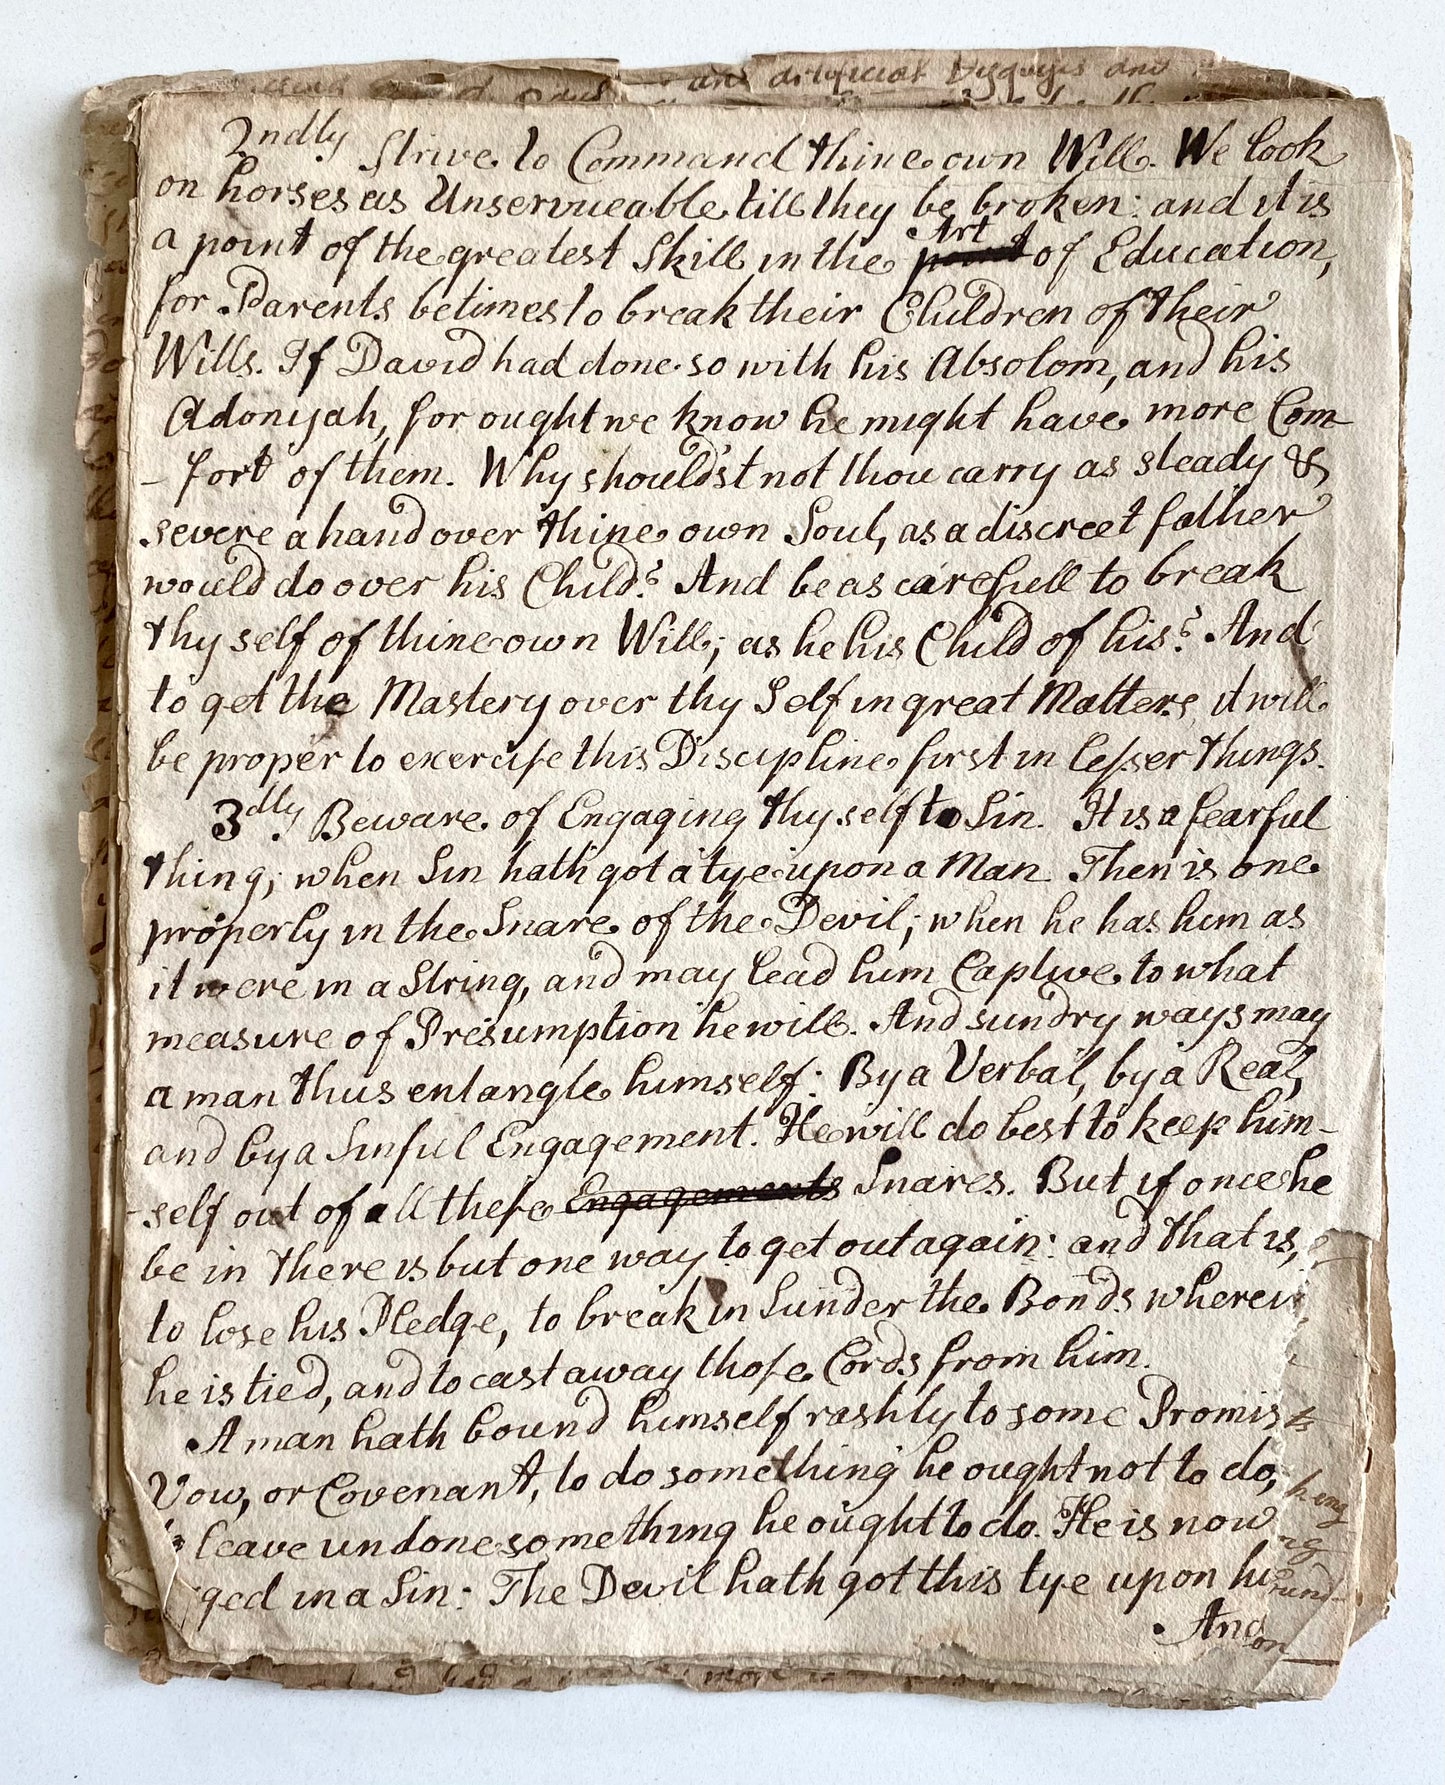 and artificial
2ndly Strive to Command thine own Will. We look
on horses as Unserviceable till they be broken: and it is
a point of the greatest Skill in the point Art of Education,
for Parents betimes to break their Children of their
Wills. If David had done so with his Absolom, and his
Adonijah, for ought we know he might have more Com-
-fort of them. Why should'st not thou carry as steady &
severe a hand over thine own Soul, as a discreet father
would do over his Child? And be as carefull to break
thy self of thine own Will; as he his Child of his? And
to get the Mastery over thy Self in great Matters, it will
be proper to exercise this Discipline first in lesser things.
3dly Beware of Engaging thy self to Sin. It is a fearful
thing, when Sin hath got a tye upon a Man. Then is one
properly in the Snare of the Devil; when he has him as
it were in a String, and may lead him Captive to what
measure of Presumption he will. And sundry ways may
a man thus entangle himself: By a Verbal, by a Real,
and by a Sinful Engagement. He will do best to keep him-
-self out of all these Engagements Snares. But if once he
be in there is but one way to get out again: and that is,
to lose his Pledge, to break in Sunder the Bonds wherein
he is tied, and to cast away those Cords from him.
A man hath bound himself rashly to some Promis
Vow, or Covenant, to do something he ought not to do,
leave undone something he ought to do. He is now
ged in a Sin: The Devil hath got this tye upon hi
And